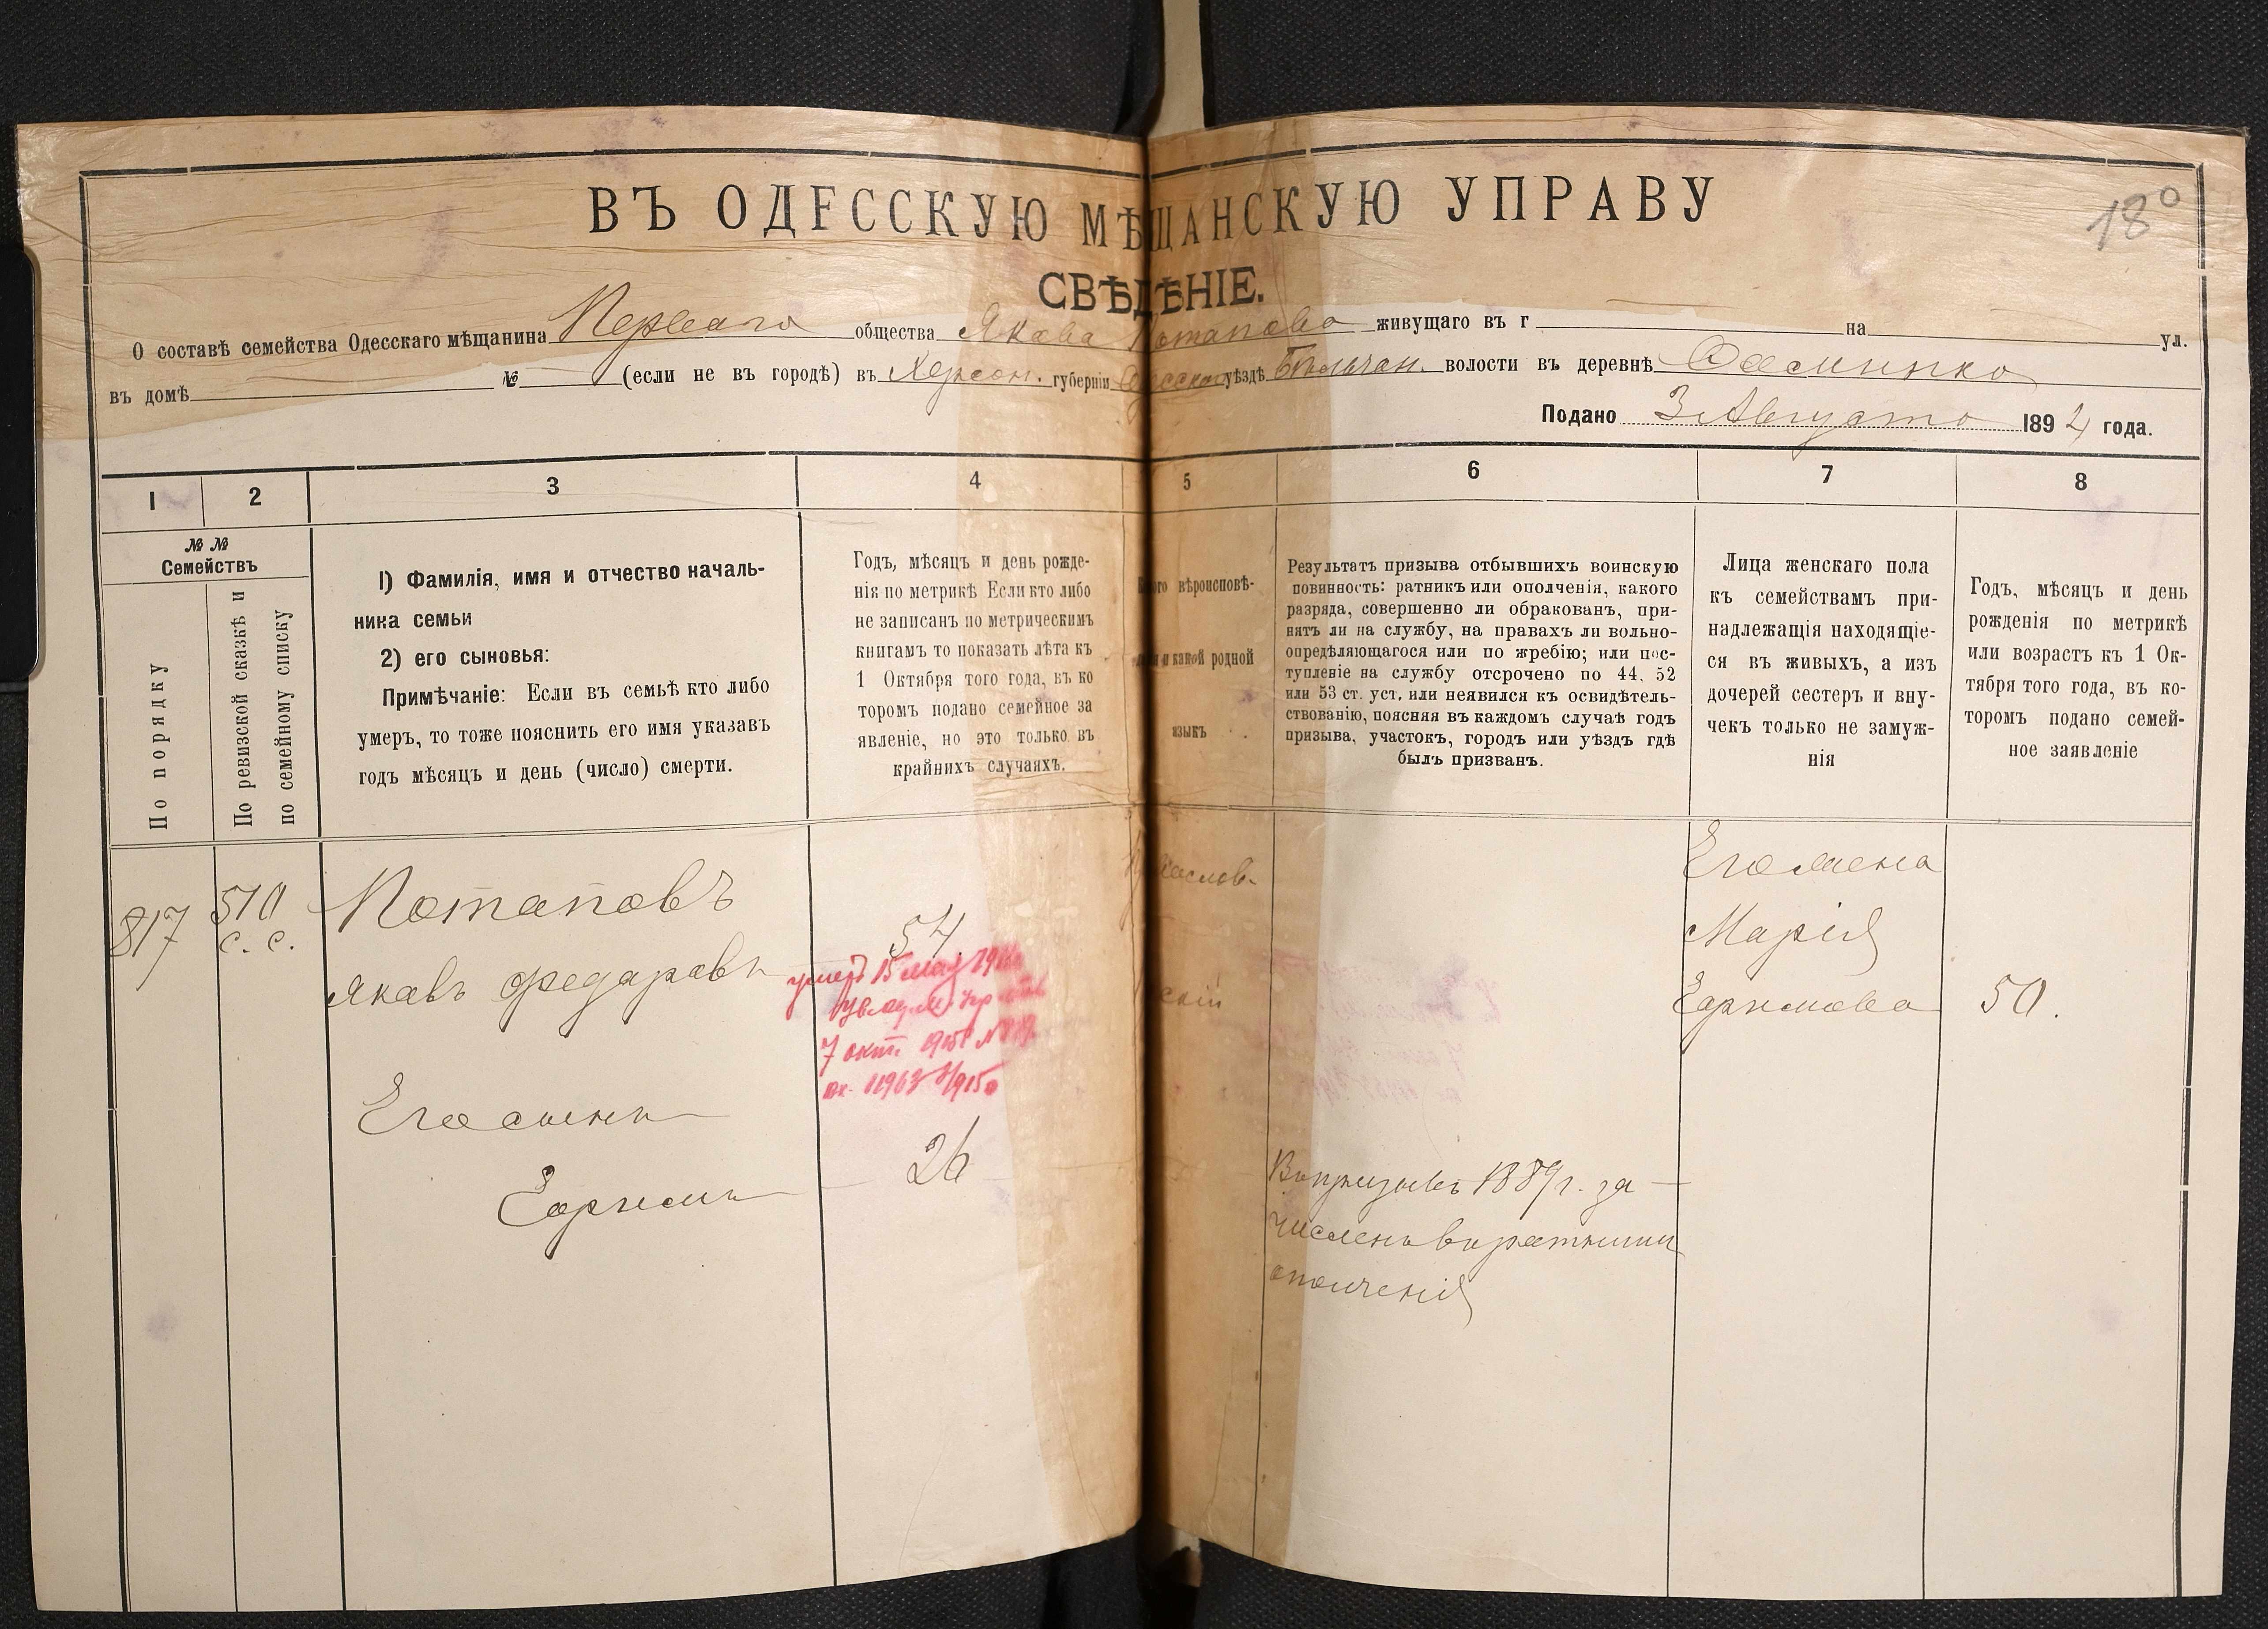 ВЪ ОДЕССКУЮ МѢЩАНСКУЮ УПРАВУ
180
СВѢДѢНІЕ.
О составѣ семейства Одесскаго мѣщанина Перваго общества Якова Потапова живущаго въ г на ул.
въ домѣ № (если не въ городѣ) въ Херсон. губерніи Одесскомъ уѣздѣ волости въ деревнѣ
Подано 3 Августа 1894 года.
1 2 3 4 5 6 7 8
№ № Семействъ
По порядку
По ревизской сказкѣ и
по семейному списку
1) Фамилія, имя и отчество началь-
ника семьи
2) его сыновья:
Примѣчаніе: Если въ семьѣ кто либо
умеръ, то тоже пояснить его имя указавъ
годъ мѣсяцъ и день (число) смерти.
Годъ, мѣсяцъ и день рожде-
нія по метрикѣ Если кто либо
не записанъ по метрическимъ
книгамъ то показать лѣта къ
1 Октября того года, въ ко
торомъ подано семейное за
явленіе, но это только въ
крайнихъ случаяхъ.
вѣроисповѣ-
и какой родной
языкъ
Результатъ призыва отбывшихъ воинскую
повинность: ратникъ или ополченія, какого
разряда, совершенно ли обракованъ, при-
нятъ ли на службу, на правахъ ли вольно-
опредѣляющагося или по жребію; или пос-
тупленіе на службу отсрочено по 44, 52
или 53 ст. уст. или неявился къ освидѣтель-
ствованію, поясняя въ каждомъ случаѣ годъ
призыва, участокъ, городъ или уѣздъ гдѣ
былъ призванъ.
Лица женскаго пола
къ семействамъ при-
надлежащія находящіе-
ся въ живыхъ, а изъ
дочерей сестеръ и вну-
чекъ только не замуж-
нія
Годъ, мѣсяцъ и день
рожденія по метрикѣ
или возрастъ къ 1 Ок-
тября того года, въ ко-
торомъ подано семей-
ное заявленіе
817
510
с. с.
Потаповъ
Яковъ Федоровъ
54
умеръ 15 мая
7 окт. 1915
Его сынъ
Ефимъ
26
Въ призывъ 1889 г. за
численъ въ ратники
ополченія
Его жена
Марія
Ефимова
50.